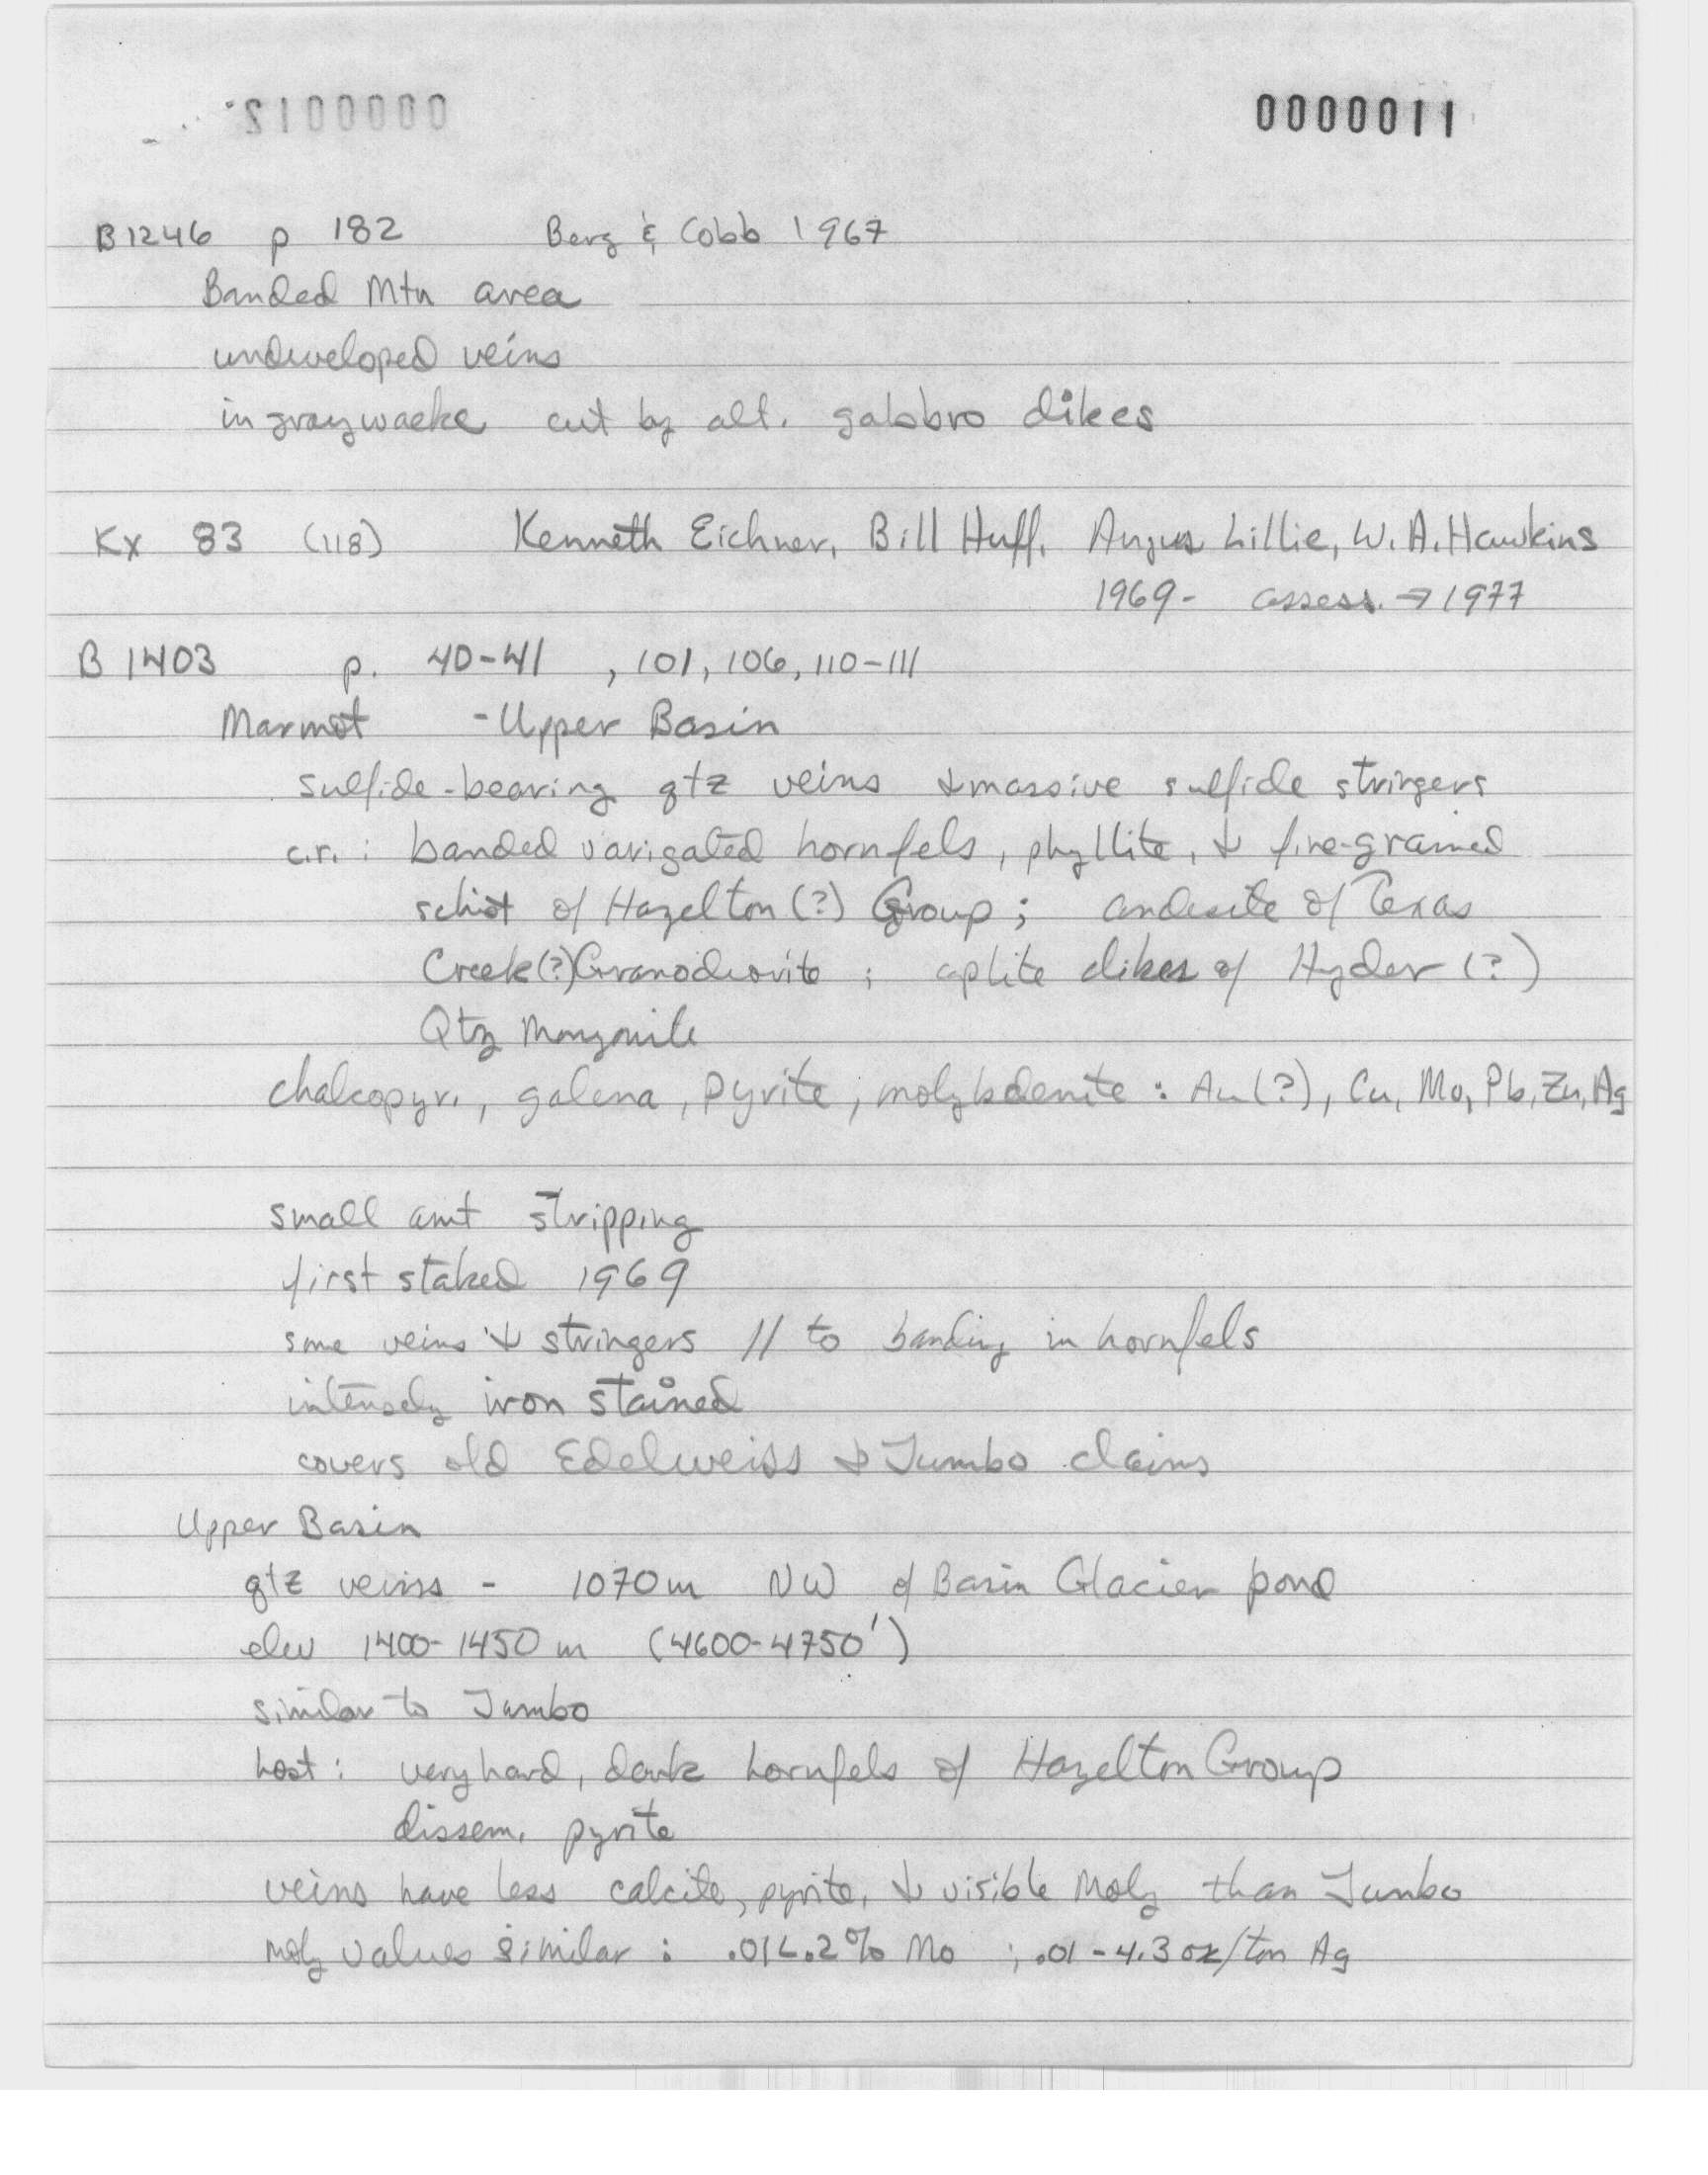 0000012 0000011
B1246 p 182 Berg & Cobb 1967
Banded Mtn area
undeveloped veins
in graywacke cut by alt. gabbro dikes
Kx 83 (118) Kenneth Eichner, Bill Huff, Angus Lillie, W. A. Hawkins
1969- assess. → 1977
B 1403 p. 40-41 , 101, 106, 110-111
Marmot - Upper Basin
sulfide-bearing qtz veins & massive sulfide stringers
c.r. : banded varigated hornfels, phyllite, & fine-grained
schist of Hazelton (?) Group ; andesite of Texas
Creek (?) Granodiorite ; aplite dikes of Hyder (?)
Qtz Monzonite
chalcopyr., galena, pyrite, molybdenite : Au (?), Cu, Mo, Pb, Zn, Ag
small amt stripping
first staked 1969
some veins & stringers // to banding in hornfels
intensely iron stained
covers old Edelweiss & Jumbo claims
Upper Basin
qtz veins - 1070 m NW of Basin Glacier pond
elev 1400-1450 m (4600-4750')
similar to Jumbo
host : very hard, dark hornfels of Hazelton Group
dissem. pyrite
veins have less calcite, pyrite, & visible Moly than Jumbo
moly values similar : .01-.2% Mo ; .01-4.3 oz/ton Ag